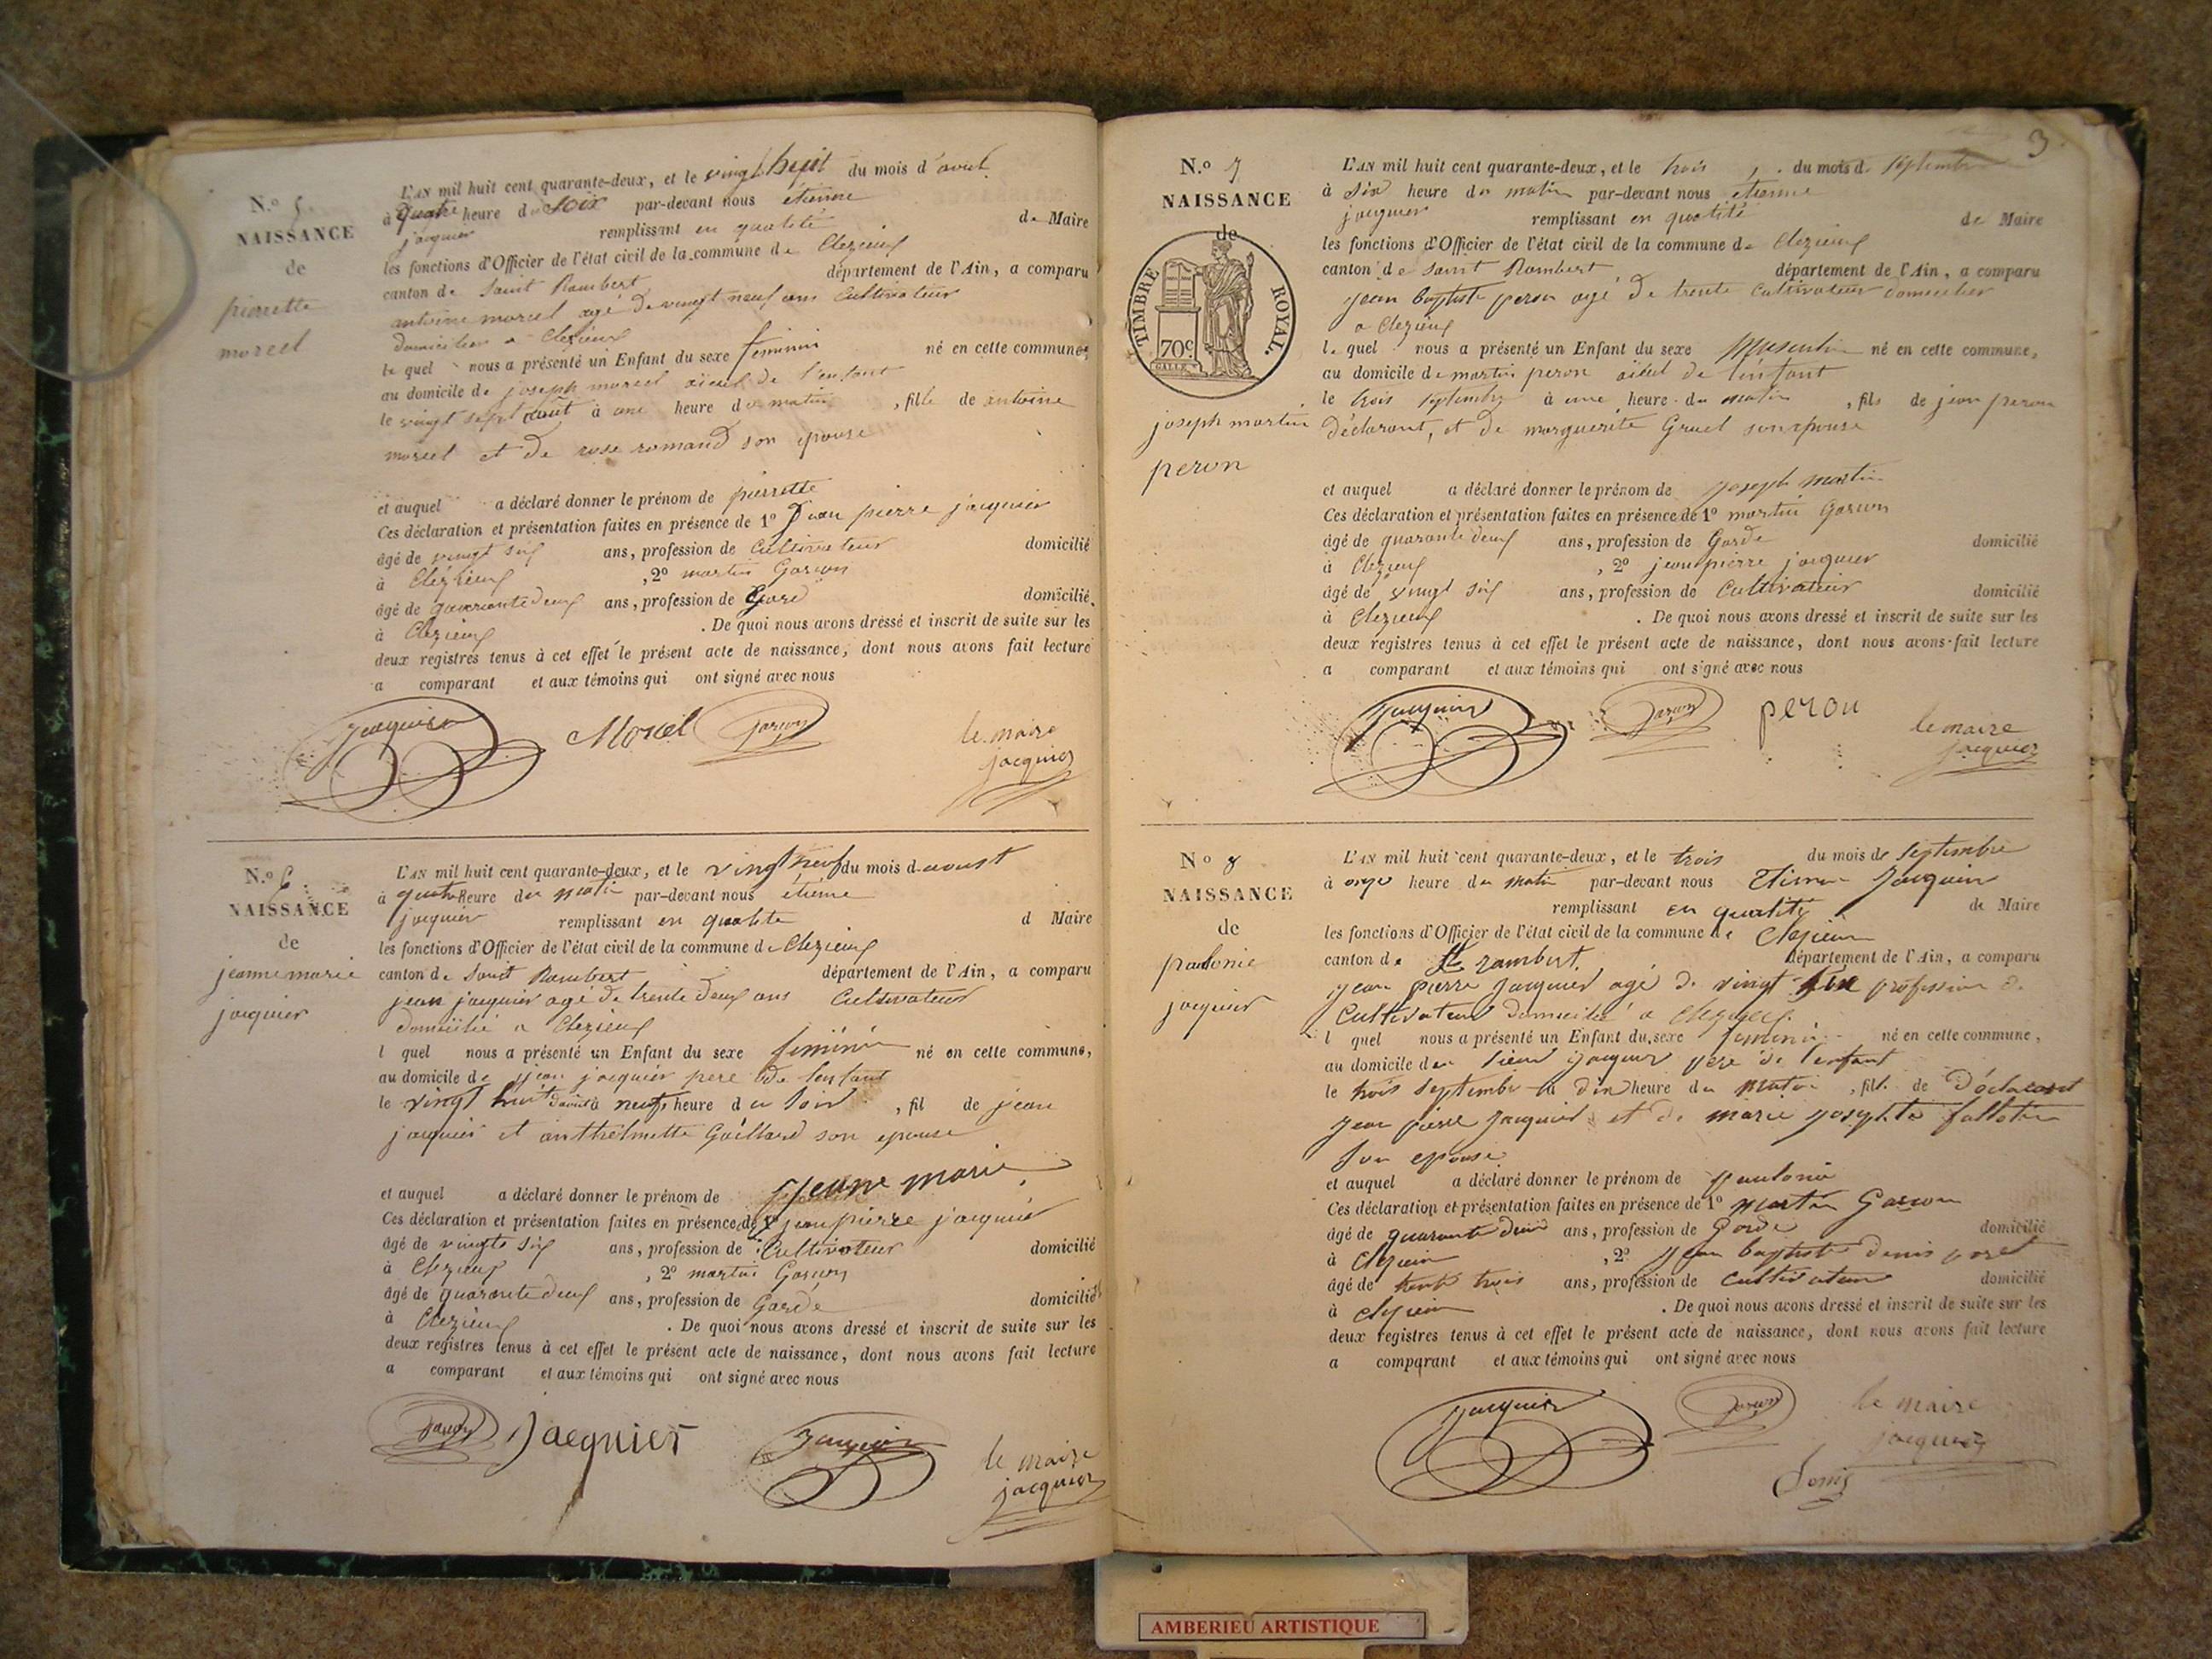 N.º 5.
NAISSANCE
de
pierrette
morcel
L'AN mil huit cent quarante-deux, et le vingt huit du mois d'aout
à quatre heure du soir par-devant nous etienne
jaquier remplissant en qualité de Maire
les fonctions d'Officier de l'état civil de la commune de Clezieux
canton de Saint Rambert département de l'Ain, a comparu
antoine morcel agé de vingt neuf ans Cultivateur
domicilier a Clezieux
le quel nous a présenté un Enfant du sexe feminin né en cette commune,
au domicile de joseph morcel aieul de l'enfant
le vingt sept août à une heure du matin, fille de antoine
morcel et de rose romand son epouse
et auquel a déclaré donner le prénom de pierrette
Ces déclaration et présentation faites en présence de 1º Jean pierre jaquier
âgé de vingt six ans, profession de Cultivateur domicilié
à Clezieux, 2º martin Garcon
âgé de quarante deux ans, profession de Garde domicilié
à Clezieux. De quoi nous avons dressé et inscrit de suite sur les
deux registres tenus à cet effet le présent acte de naissance, dont nous avons fait lecture
a comparant et aux témoins qui ont signé avec nous
jacquier Morcel garcon le maire
jacquier
N.º 6
NAISSANCE
de
jeanne marie
jaquier
L'AN mil huit cent quarante-deux, et le vingt neuf du mois d aoust
à quatre heure du matin par-devant nous étiene
jaquier remplissant en qualite d Maire
les fonctions d'Officier de l'état civil de la commune de Clezieux
canton de Saint Rambert département de l'Ain, a comparu
jean jaquier agé de trente deux ans Cultivateur
domicilié a Clezieux
l quel nous a présenté un Enfant du sexe feminin né en cette commune,
au domicile de jean jaquier pere de lenfant
le vingt huit daout à neuf heure du soir, fil de jean
jaquier et anthelmette Gaillard son epouse
et auquel a déclaré donner le prénom de jeane marie
Ces déclaration et présentation faites en présence de 1º jean pierre jaquier
âgé de vingts six ans, profession de Cultivateur domicilié
à Clezieux, 2º martin Garcon
âgé de quarante deux ans, profession de Garde domicilié
à Clezieux. De quoi nous avons dressé et inscrit de suite sur les
deux registres tenus à cet effet le présent acte de naissance, dont nous avons fait lecture
a comparant et aux témoins qui ont signé avec nous
garcon Jacquier jacquier le maire
jacquier
3
N.º 7
NAISSANCE
de
TIMBRE ROYAL.
70c
joseph martin
peron
L'AN mil huit cent quarante-deux, et le trois du mois de septembre
à six heure du matin par-devant nous etienne
jaquier remplissant en qualité de Maire
les fonctions d'Officier de l'état civil de la commune de Clezieux
canton de Saint Rambert département de l'Ain, a comparu
jean baptiste peron agé de trente Cultivateur domicilier
a Clezieux
le quel nous a présenté un Enfant du sexe Masculin né en cette commune,
au domicile de martin peron aieul de l'enfant
le trois septembre à une heure du matin, fils de jean peron
déclarant, et de marguerite Gruel son epouse
et auquel a déclaré donner le prénom de joseph martin
Ces déclaration et présentation faites en présence de 1º martin Garcon
âgé de quarante deux ans, profession de Garde domicilié
à Clezieux, 2º jean pierre jaquier
âgé de vingt six ans, profession de Cultivateur domicilié
à Clezieux. De quoi nous avons dressé et inscrit de suite sur les
deux registres tenus à cet effet le présent acte de naissance, dont nous avons fait lecture
a comparant et aux témoins qui ont signé avec nous
jacquier garcon peron le maire
jacquier
Nº 8
NAISSANCE
de
jaquier
L'AN mil huit cent quarante-deux, et le trois du mois de Septembre
à onze heure du matin par-devant nous Etienne Jaquier
remplissant en qualité de Maire
les fonctions d'Officier de l'état civil de la commune de Clezieux
canton de St rambert. département de l'Ain, a comparu
jean pierre jaquier agé de vingt six profession de
Cultivateur domicilié a Clezieux
l quel nous a présenté un Enfant du sexe feminin né en cette commune,
au domicile du sieur jaquier pere de l'enfant
le trois septembre à dix heure du matin, fill. de Déclarant
jean pierre jaquier et de marie josephte
son epouse
et auquel a déclaré donner le prénom de
Ces déclaration et présentation faites en présence de 1º martin Garcon
âgé de quarante deux ans, profession de Garde domicilié
à Clezieux, 2º jean baptiste denis
âgé de trente trois ans, profession de Cultivateur domicilié
à Clezieux. De quoi nous avons dressé et inscrit de suite sur les
deux registres tenus à cet effet le présent acte de naissance, dont nous avons fait lecture
a comparant et aux témoins qui ont signé avec nous
jacquier garcon le maire
jacquier
Denis
AMBERIEU ARTISTIQUE